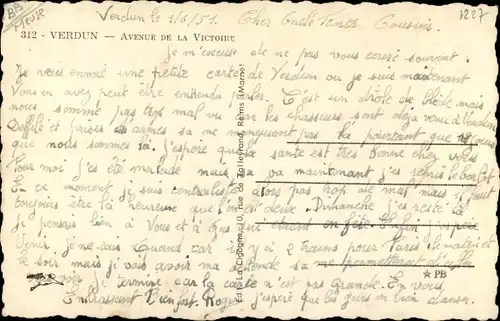 BB
Meuse
Verdun le 1/6/51. Cher Oncle Tante Cousins.
1227
312 - VERDUN — AVENUE DE LA VICTOIRE
je m'excuse de ne pas vous écrire souvent.
Je vous envoie une petite carte de Verdun ou je suis maintenant
Vous en avez peut être entendu parler. C'est un drôle de blède mais
nous somme pas trop mal nu car les chasseurs sont déjà venu à Verdun
Défilé et prises armes sa ne manquent pas la pourtant que jours
que nous sommes là. j'espère que la sante est très bonne chez vous
Pour moi j'ai été malade mais sa va maintenant j'ai repris le
En ce moment je suis alors pas trop de mal mais il faut
toujours être là heureuse que l'on est deux. Dimanche j'ai resté là
je pensais bien à Vous et à étant en fête. Enfin j'espère
Venir. je ne sais quand car il y a 2 trains pour Paris le matin et
le soir mais je vais avoir ma sa me
je termine car la carte n'est pas Grande. En vous
Embrassant Bien fort. Roger j'espère que les gars en bien danser.
Edit. La Cigogne, 10, rue de Talleyrand, Reims (Marne)
☆ PB